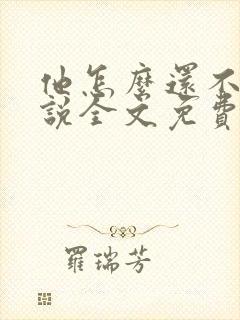 他怎麼還不
說全文免費
羅瑞芳